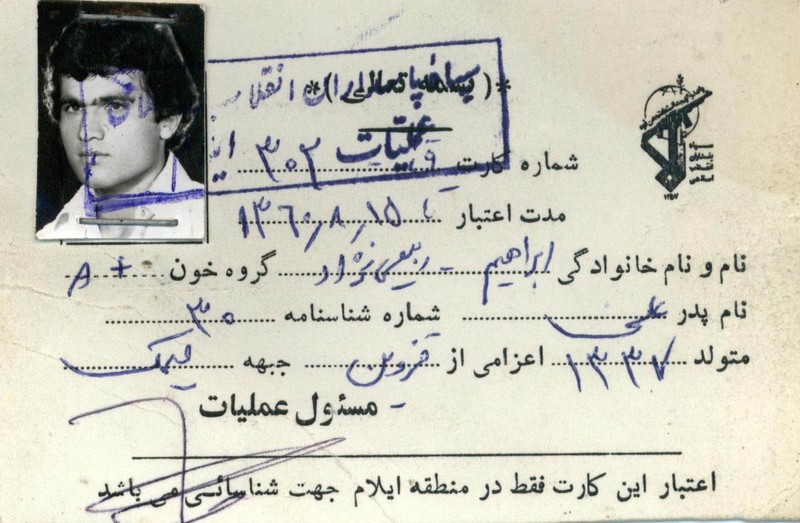 (بسمه تعالی)
سپاه پاسداران انقلاب
عملیات
شماره کارت ۳۰۲
مدت اعتبار تا ۱۳۶۰/۸/۱۵
نام و نام خانوادگی ابراهیم - ربیعی نژاد گروه خون A+
نام پدر علی شماره شناسنامه ۳۰
متولد ۱۳۳۷ اعزامی از قزوین جبهه میمک
مسئول عملیات -
اعتبار این کارت فقط در منطقه ایلام جهت شناسائی می باشد